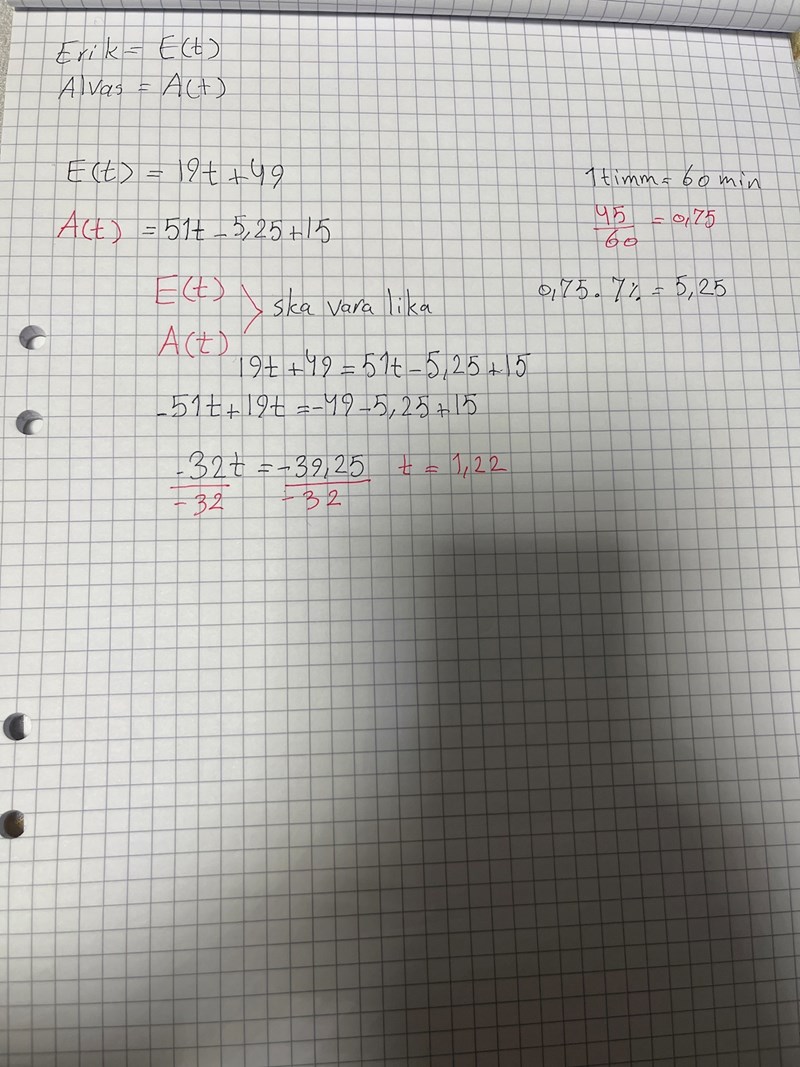 Erik = E(t)
Alvas = A(t)
E(t) = 19t + 49
1timm = 60 min
A(t) = 51t - 5,25 + 15
45/60 = 0,75
E(t)
A(t)
ska vara lika
0,75 · 7% = 5,25
19t + 49 = 51t - 5,25 + 15
-51t + 19t = -49 - 5,25 + 15
-32t/-32 = -39,25/-32 t = 1,22